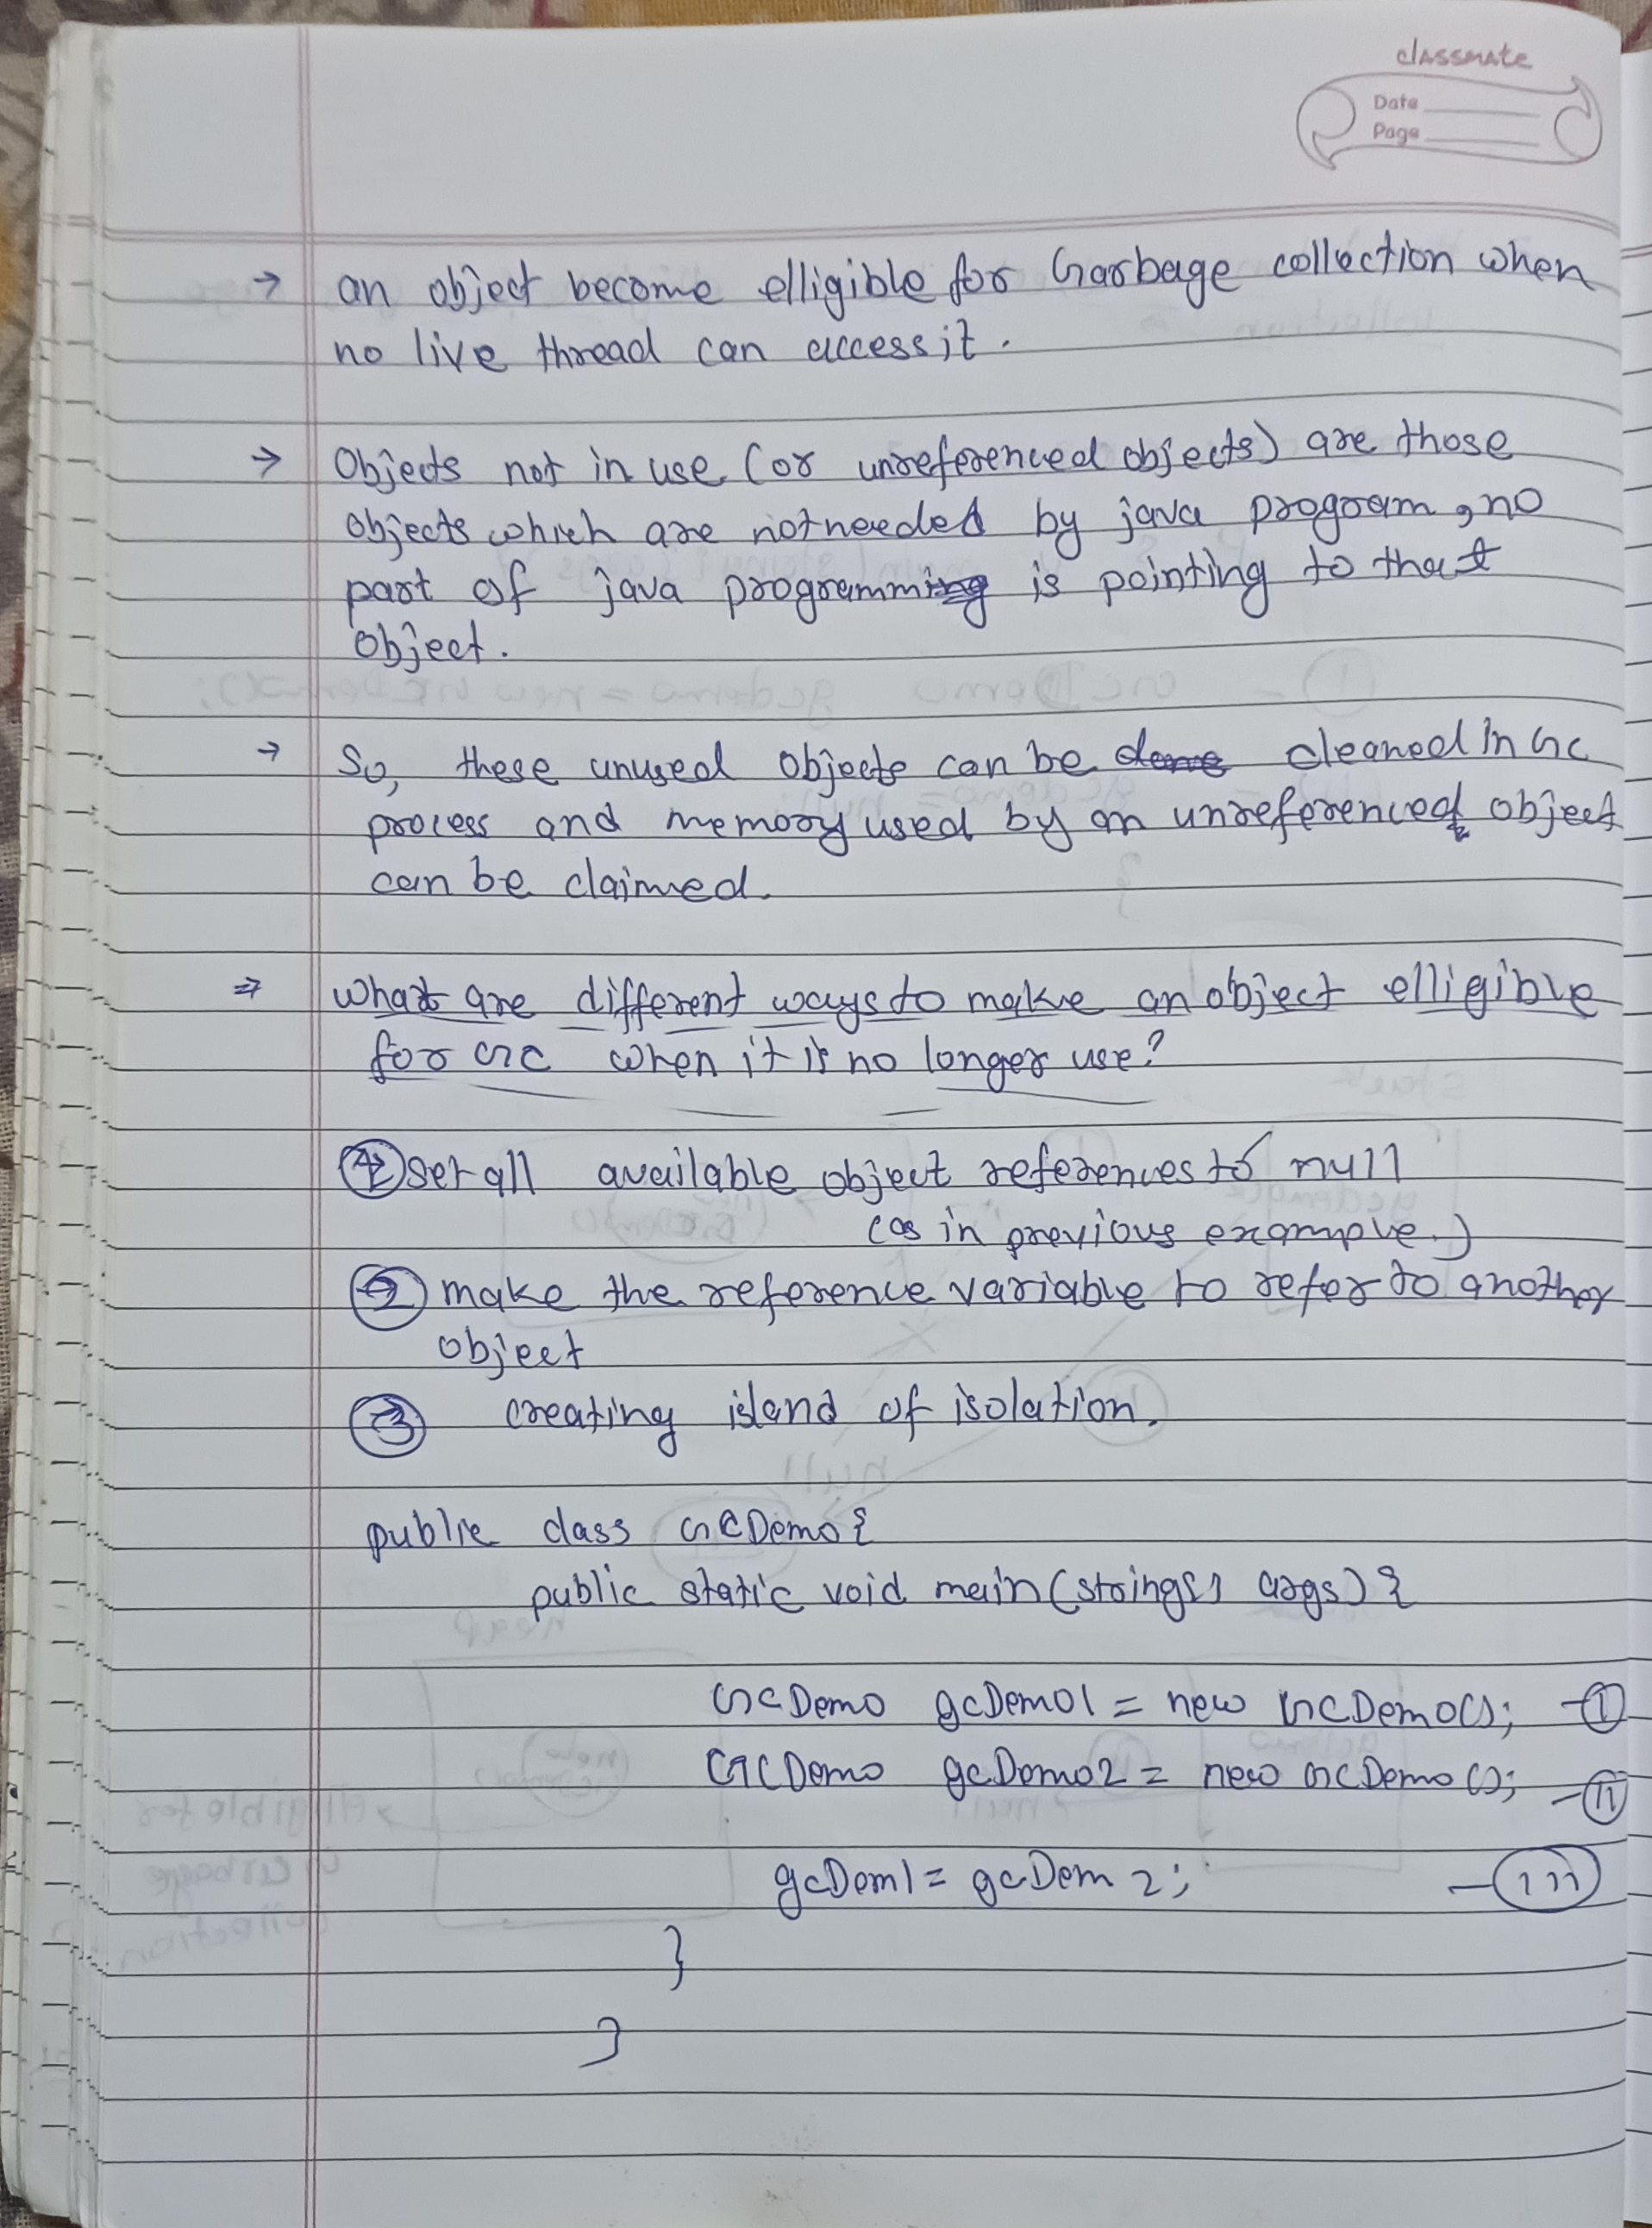 classmate
Date
Page
→ an object become elligible for Garbage collection when
no live thread can access it.
→ Objects not in use (or unreferenced objects) are those
objects which are not needed by java program, no
part of java programming is pointing to that
object.
→ So, these unused objects can be done cleaned in GC
process and memory used by an unreferenced object
can be claimed.
⇒ what are different ways to make an object elligible
for GC when it is no longer use?
① set all available object references to null
(as in previous example.)
② make the reference variable to refer to another
object
③ creating island of isolation.
public class GCDemo{
public static void main(string[] args) {
GCDemo gcDemo1 = new GCDemo(); -①
GCDemo gcDemo2 = new GCDemo(); -(ii)
gcDem1 = gcDem 2; -(iii)
}
}